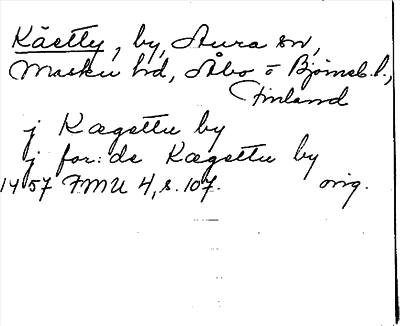 Käetty, by, Aura sn,
Masku hd, Åbo o Björneb. l.,
Finland
j Kægettu by
j for: de Kægettu by
1457 FMU 4, s. 107. orig.